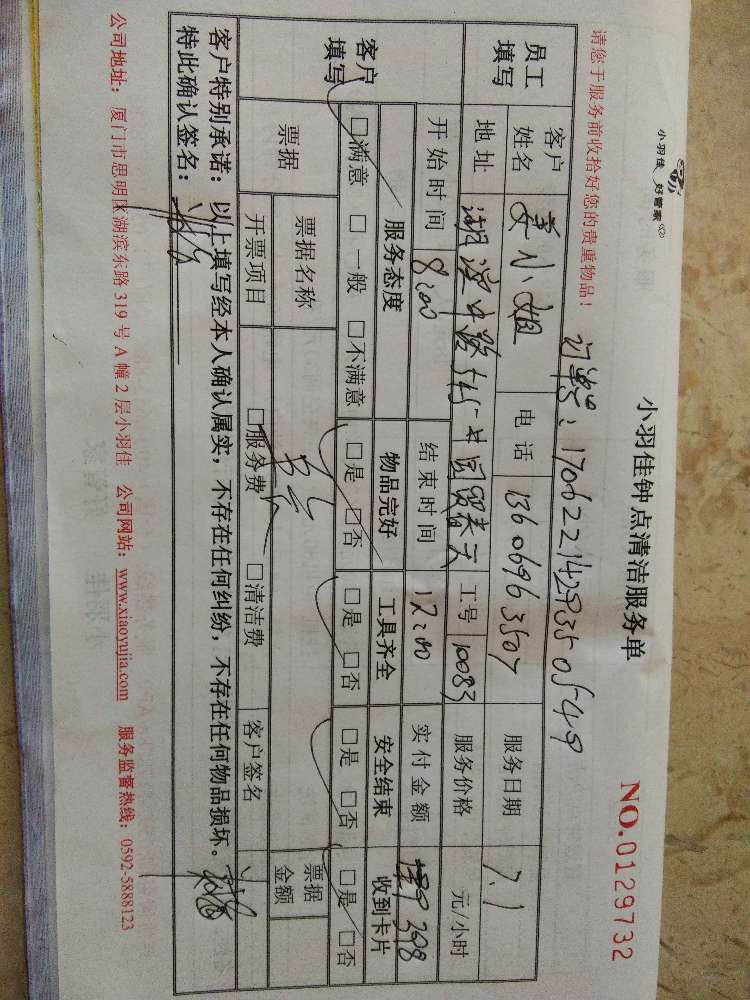 小羽佳 好管家
小羽佳钟点清洁服务单
NO.0129732
请您于服务前收拾好您的贵重物品!
订单号:1706221429350549
员工填写 客户姓名 姜小姐 电话 13606963507 服务日期 7.1
地址 湖滨中路 国贸春天 工号 10083 服务价格 元/小时
开始时间 8:00 结束时间 12:00 实付金额 398
客户填写 服务态度 物品完好 工具齐全 安全结束 收到卡片
□满意 □一般 □不满意 □是 □否 □是 □否 □是 □否 □是 □否
票据 票据名称 票据金额
开票项目 □服务费 □清洁费 客户签名
客户特别承诺:以上填写经本人确认属实,不存在任何纠纷,不存在任何物品损坏。
特此确认签名:
公司地址:厦门市思明区湖滨东路 319 号 A 幢 2 层小羽佳 公司网站:www.xiaoyujia.com 服务监督热线:0592-5888123